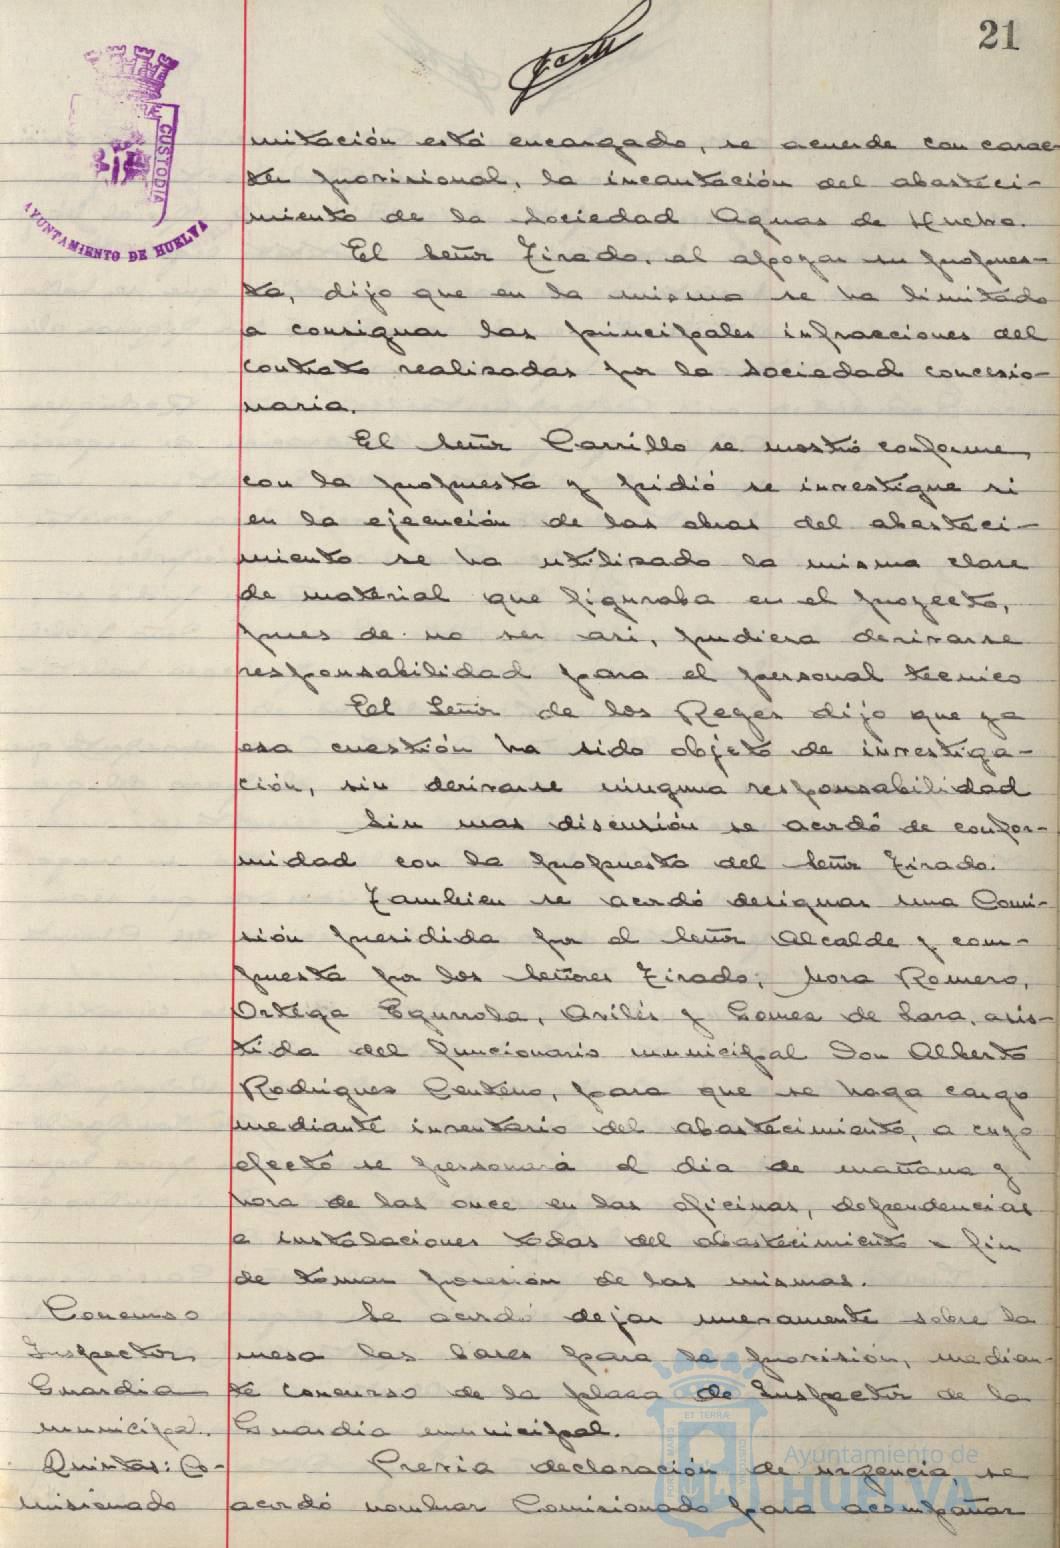 21
CUSTODIA
AYUNTAMIENTO DE HUELVA
mitación está encargado, se acuerde con carac-
ter provisional, la incautación del abasteci-
miento de la Sociedad Aguas de Huelva.
El Señor Tirado, al apoyar su propues-
ta, dijo que en la misma se ha limitado
a consignar las principales infracciones del
contrato realizadas por la Sociedad concesio-
naria.
El Señor Carrillo se mostró conforme
con la propuesta y pidió se investigue si
en la ejecución de las obras del abasteci-
miento se ha utilizado la misma clase
de material que figuraba en el proyecto,
pues de no ser asi, pudiera derivarse
responsabilidad para el personal tecnico
El Señor de los Reyes dijo que ya
esa cuestión ha sido objeto de investiga-
ción, sin derivarse ninguna responsabilidad
Sin mas discusión se acordó de confor-
midad con la propuesta del Señor Tirado.
Tambien se acordó designar una Comi-
sión presidida por el Señor Alcalde y com-
puesta por los Señores Tirado, Mora Romero,
Ortega Egurrola, Avilés y Gomez de Lara, asis-
tida del funcionario municipal Don Alberto
Rodriguez Centeno, para que se haga cargo
mediante inventario del abastecimiento, a cuyo
efecto se personará el dia de mañana y
hora de las once en las oficinas, dependencias
e instalaciones todas del abastecimiento a fin
de tomar posesión de las mismas.
Concurso
Inspector
Guardia
municipal.
Se acordó dejar nuevamente sobre la
mesa las bases para la provisión, median-
te concurso de la plaza de Inspector de la
Guardia municipal.
Quintas: Co-
misionado
Previa declaración de urgencia, se
acordó nombrar Comisionado para acompañar
ET TERRÆ
Ayuntamiento de
HUELVA